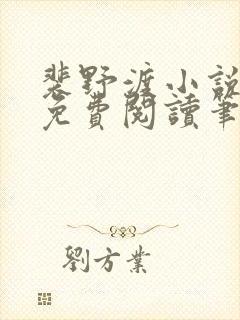 裴野渡小說
免費閱讀筆
劉方業